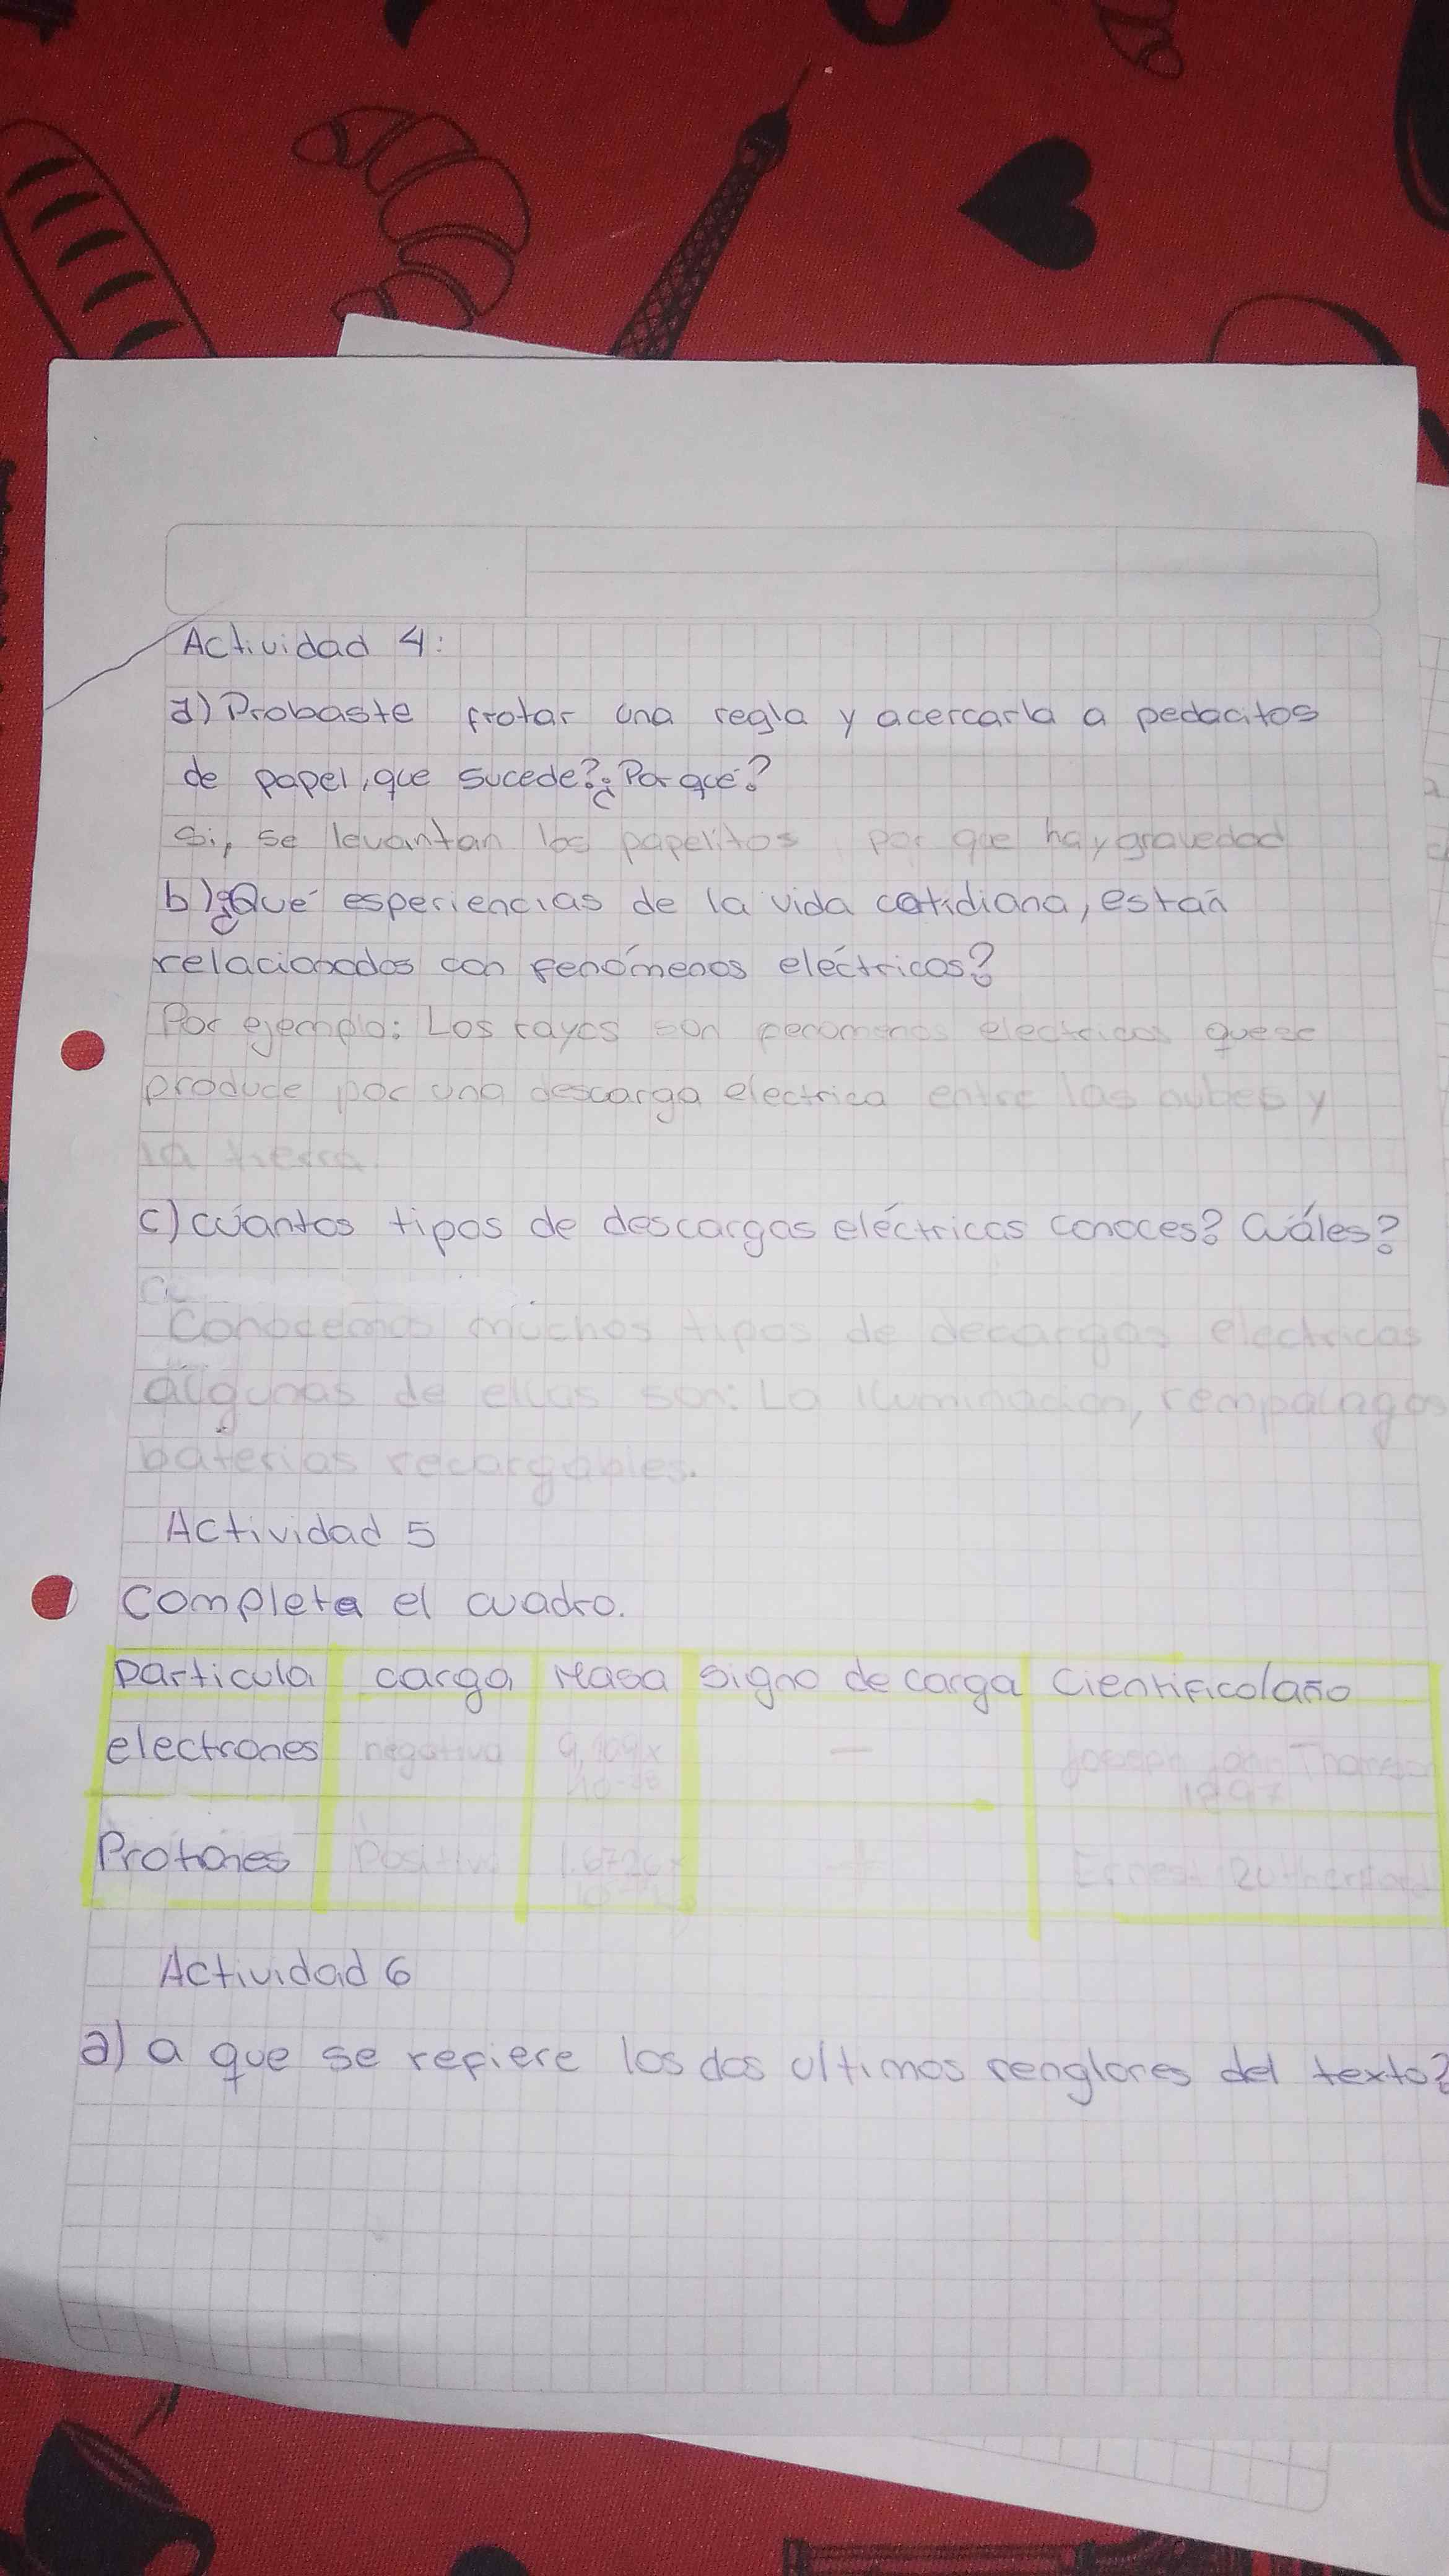 Actividad 4:
a) Probaste frotar una regla y acercarla a pedacitos
de papel, que sucede? ¿Por qué?
Si, se levantan los papelitos por que hay gravedad
b) ¿Qué esperiencias de la vida cotidiana, están
relacionados con fenómenos eléctricos?
Por ejemplo: Los rayos son penomenos electricos que se
produce por una descarga electrica entre las nubes y
la tierra
c) cuántos tipos de descargas eléctricas conoces? Cuáles?
Conocemos muchos tipos de decargas electricas
algunas de ellas son: La iluminacion, rempalagos
baterias recargables.
Actividad 5
Completa el cuadro.
particula carga Masa signo de carga Cientifico/año
electrones negativa 9,109x —
1897
Protones Positiva + Ernest Rutherford
Actividad 6
a) a que se refiere los dos ultimos renglones del texto?